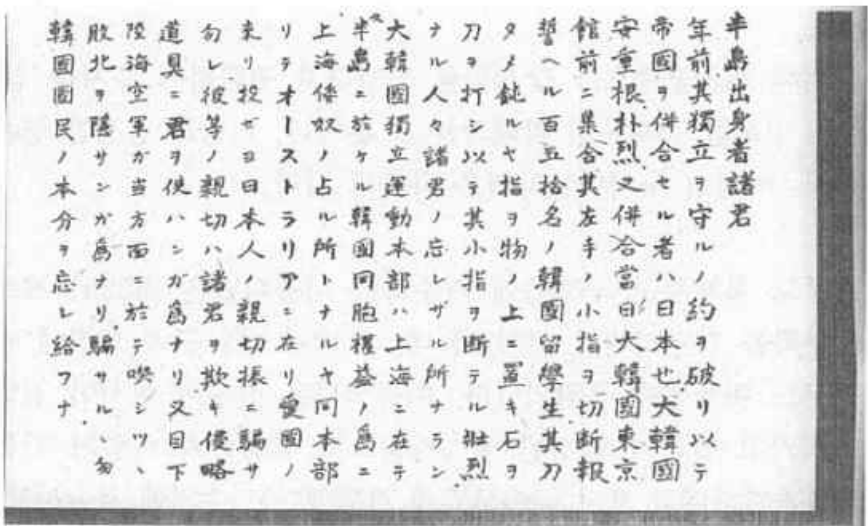 半島出身者諸君
年前其獨立ヲ守ルノ約ヲ破リ以テ
帝國ヲ併合セル者ハ日本也大韓國
安重根朴烈又併合當日大韓國東京
館前ニ集合其左手ノ小指ヲ切断報
誓ヘル百五拾名ノ韓國留學生其刀
タメ鈍ルヤ指ヲ物ノ上ニ置キ石ヲ
刀ヲ打シ以テ其小指ヲ断テル壯烈
ナル人々諸君ノ忘レザル所ナラン
大韓國獨立運動本部ハ上海ニ在テ
半島ニ於ケル韓國同胞權益ノ爲ニ
上海倭奴ノ占ル所トナルヤ同本部
リテオーストラリアニ在リ愛國ノ
来リ投ゼヨ日本人ノ親切振ニ騙サ
勿レ彼等ノ親切ハ諸君ヲ欺キ侵略
道具ニ君ヲ使ハンガ爲ナリ又目下
陸海空軍ガ当方面ニ於テ喫シツヽ
敗北ヲ隠サンガ爲ナリ騙サルヽ勿
韓國國民ノ本分ヲ忘レ給フナ